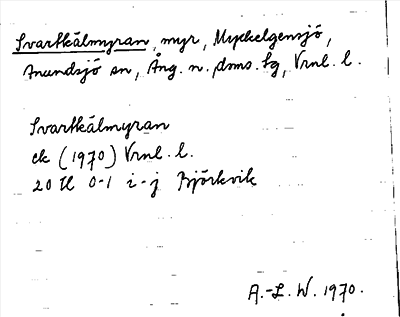 Svartkälmyran, myr, Myckelgensjö,
Anundsjö sn, Ång. n. doms. fg, Vrnl. l.
Svartkälmyran
ek (1970) Vrnl. l.
20 H 0-1 i-j Björkvik
A.-L. W. 1970.